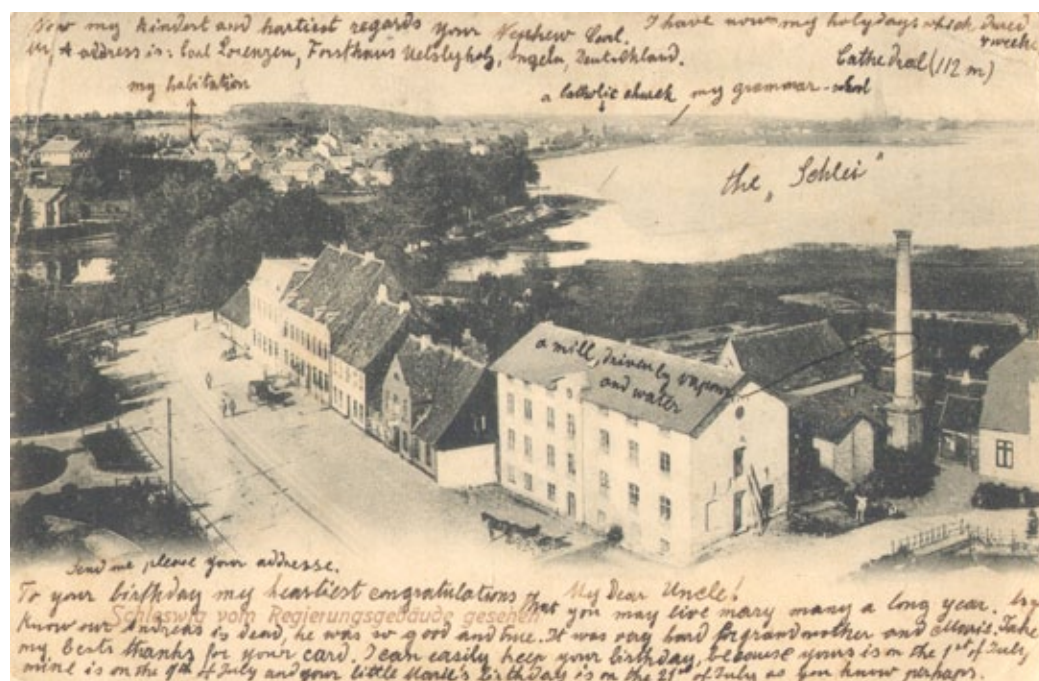 Now my kindest and hartiest regards your Nephew Carl. I have now my holydays which dured
4 weeks
My address is: Carl Lorenzen, Forsthaus Uelsbyholz, Angeln, Deutschland.
Cathedral (112 m)
my habitation
a Catholic church my grammar-school
the „Schlei“
a mill, driven by vapour
and water
Send me please your addresse.
My Dear Uncle!
To your birthday my heartiest congratulations that you may live many many a long year.
Schleswig vom Regierungsgebäude gesehen
know our Andreas is dead, he was so good and true. It was very hard for grandmother and Marie. Take
my bests thanks for your card. I can easily keep your birthday, because yours is on the 1st of July,
mine is on the 9th of July and your little Marie's birthday is on the 21st of July as you know perhaps.